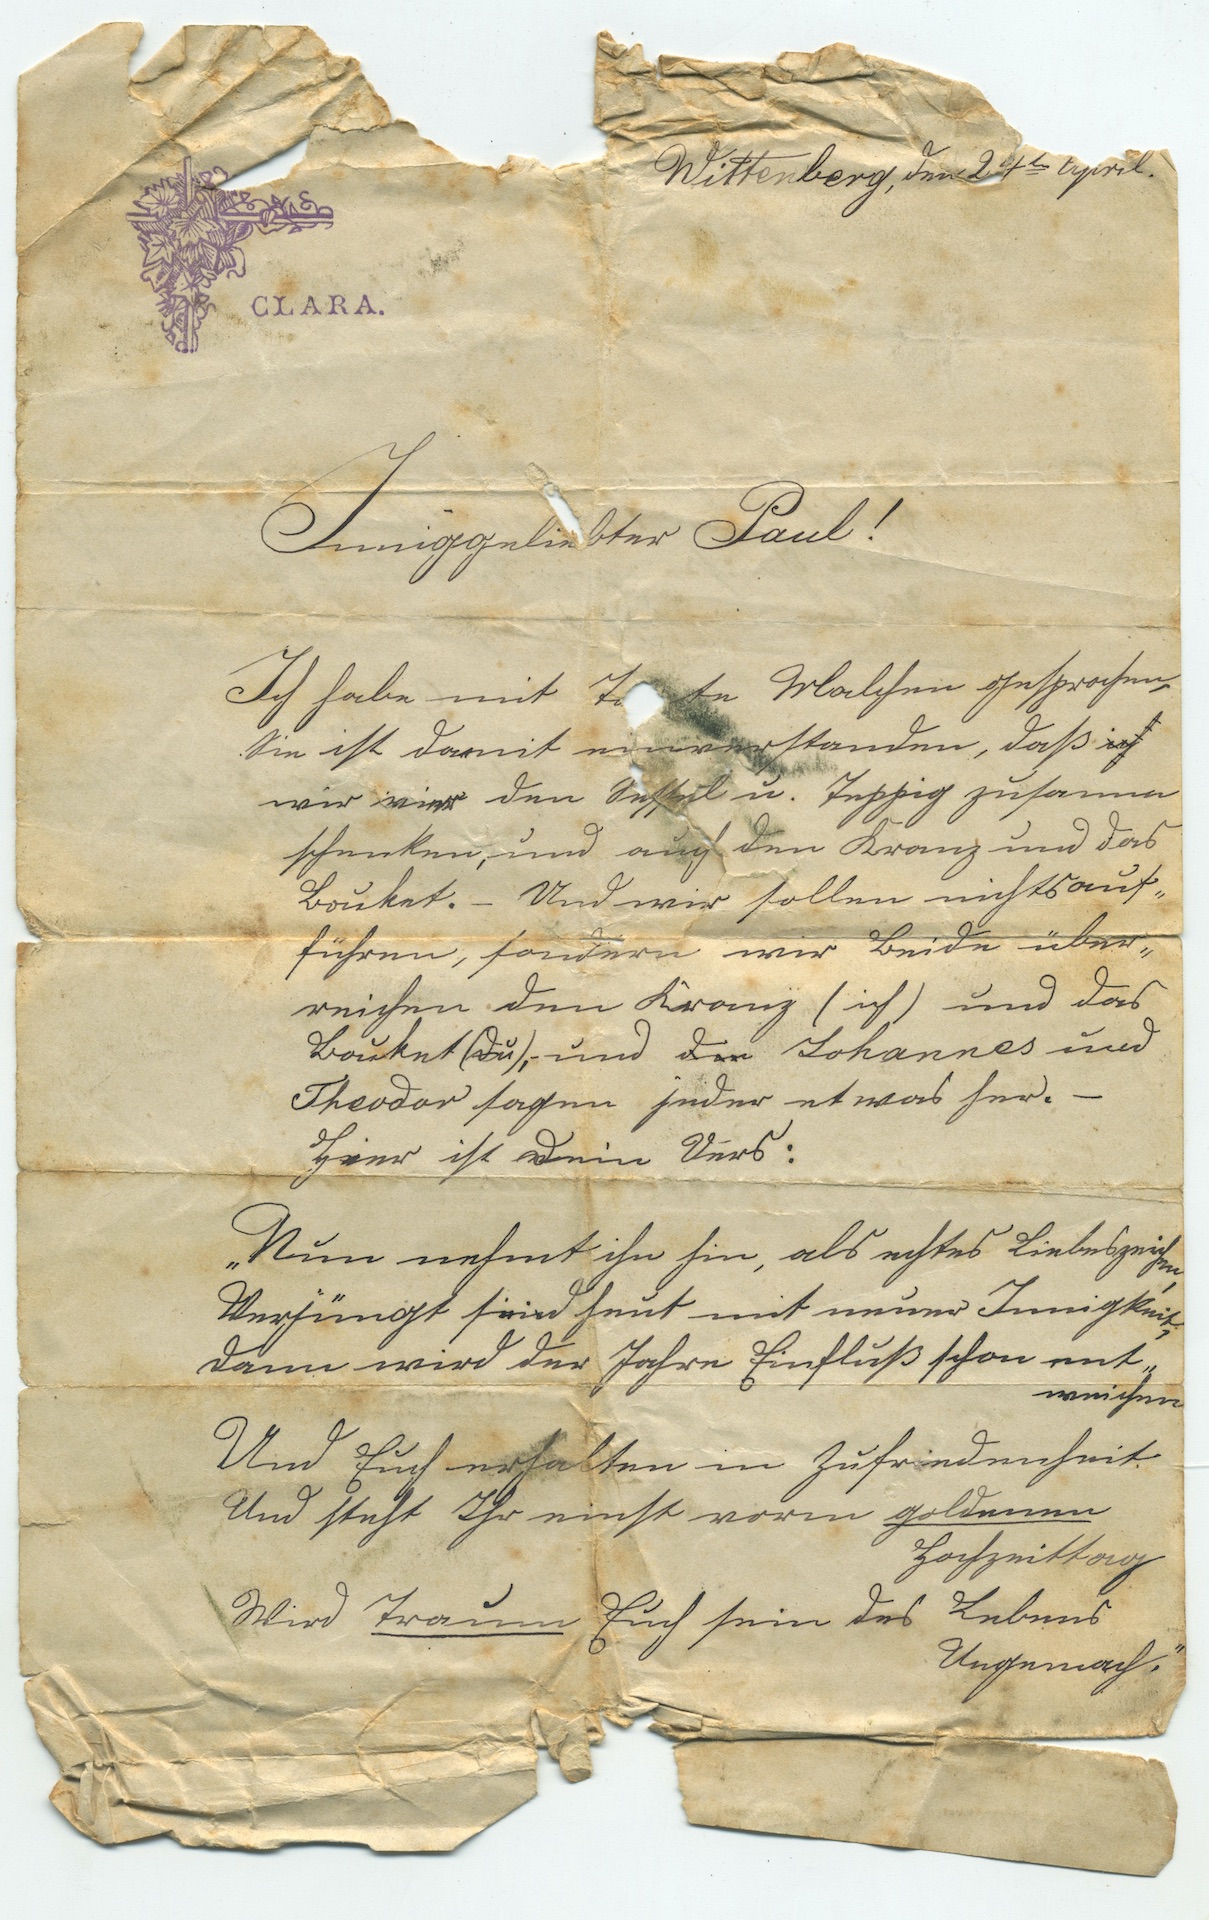 Wittenberg, den 24ten April.
CLARA.
Inniggeliebter Paul!
Ich habe mit Tante Malchen gesprochen,
Sie ist damit einverstanden, daß ich
wir vier den Sessel u. Teppig zusamm
schenken, und auch den Kranz und das
Bouket. – Und wir sollen nichts auf„
führen, sondern wir Beide über„
reichen den Kranz (ich) und das
Bouket (Du), und der Johannes und
Theodor sagen jeder etwas her. –
Hier ist Dein Vers:
„Nun nehmt ihn hin, als echtes Liebeszeichen,
Verjüngt heut mit neuer Innigkeit,
Dann wird der Jahre Einfluß schon ent„
weichen
Und Euch erhalten in Zufriedenheit
Und steht Ihr einst vorm goldenen
Hochzeittag
Wird Traum Euch sein des Lebens
Ungemach.“